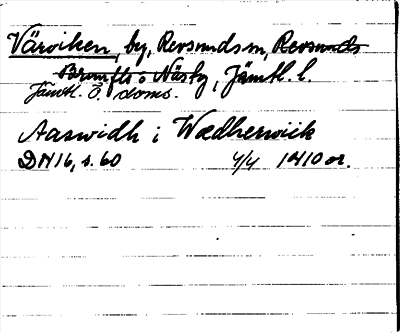 Värviken, by, Revsunds sn, Revsunds
Brunflo o Näsby, Jämtl. l.
Jämtl. Ö. doms.
Aaswidh i Wædherwiik
DN 16, s. 60 4/4 1410 or.